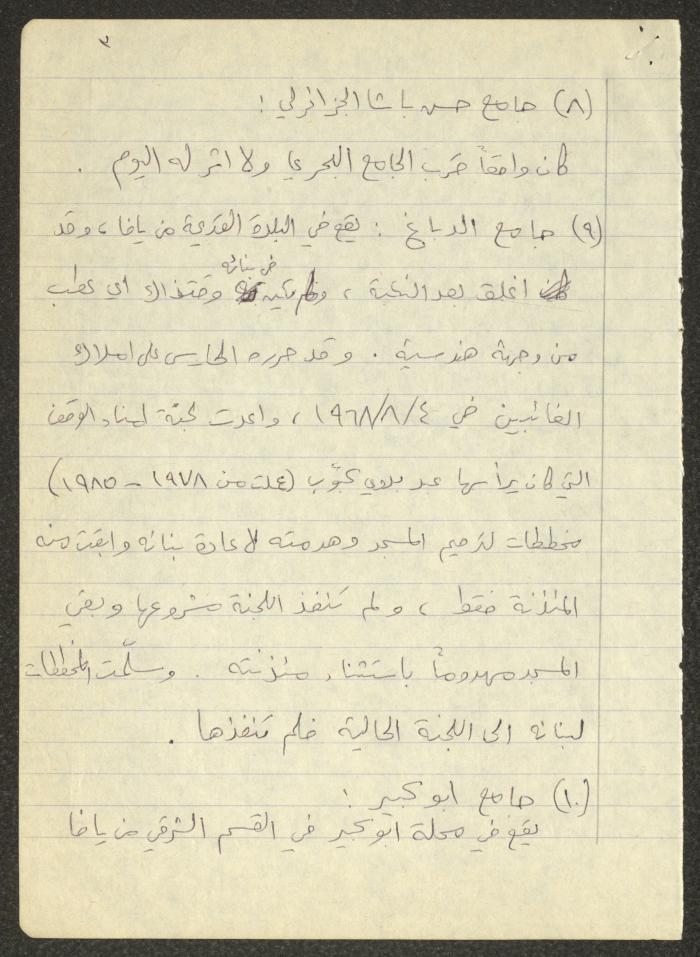 ٣
(٨) جامع حسن باشا الجزائرلي :
كان واقعاً قرب الجامع البحري ولا اثر له اليوم .
(٩) جامع الدباغ : يقع في البلدة القديمة من يافا ، وقد
في بنائه
اغلق بعد النكبة ، ولم يكن وقتذاك اي عطب
من وجهة هندسية . وقد حرره الحارس على املاك
الغائبين في ١٩٦٨/٨/٤ ، واعدت لجنة امناء الوقف
التي كان يرأسها عبد بدوي كبّوب (عملت من ١٩٧٨ - ١٩٨٥)
مخططات لترميم المسجد وهدمته لاعادة بنائه وابقت منه
المئذنة فقط ، ولم تنفذ اللجنة مشروعها وبقي
المسجد مهدوماً باستثناء مئذنته . وسلّمت المخططات
لبنائه الى اللجنة الحالية فلم تنفذها .
(١٠) جامع ابو كبير :
يقع في محلة ابو كبير في القسم الشرقي من يافا